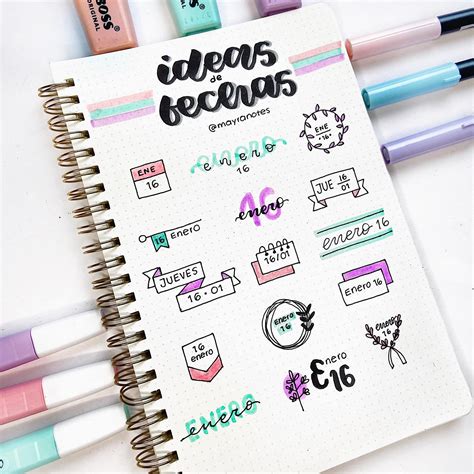 BOSS
ORIGINAL
ideas
de
fechas
@mayranotes
ENE
16
enero
16
ENE
·16·
16
enero
JUE 16
01
16 Enero
enero 16
JUEVES
16·01
16/01
Enero 16
Enero
16
16
enero
Enero
16
ENERO
enero